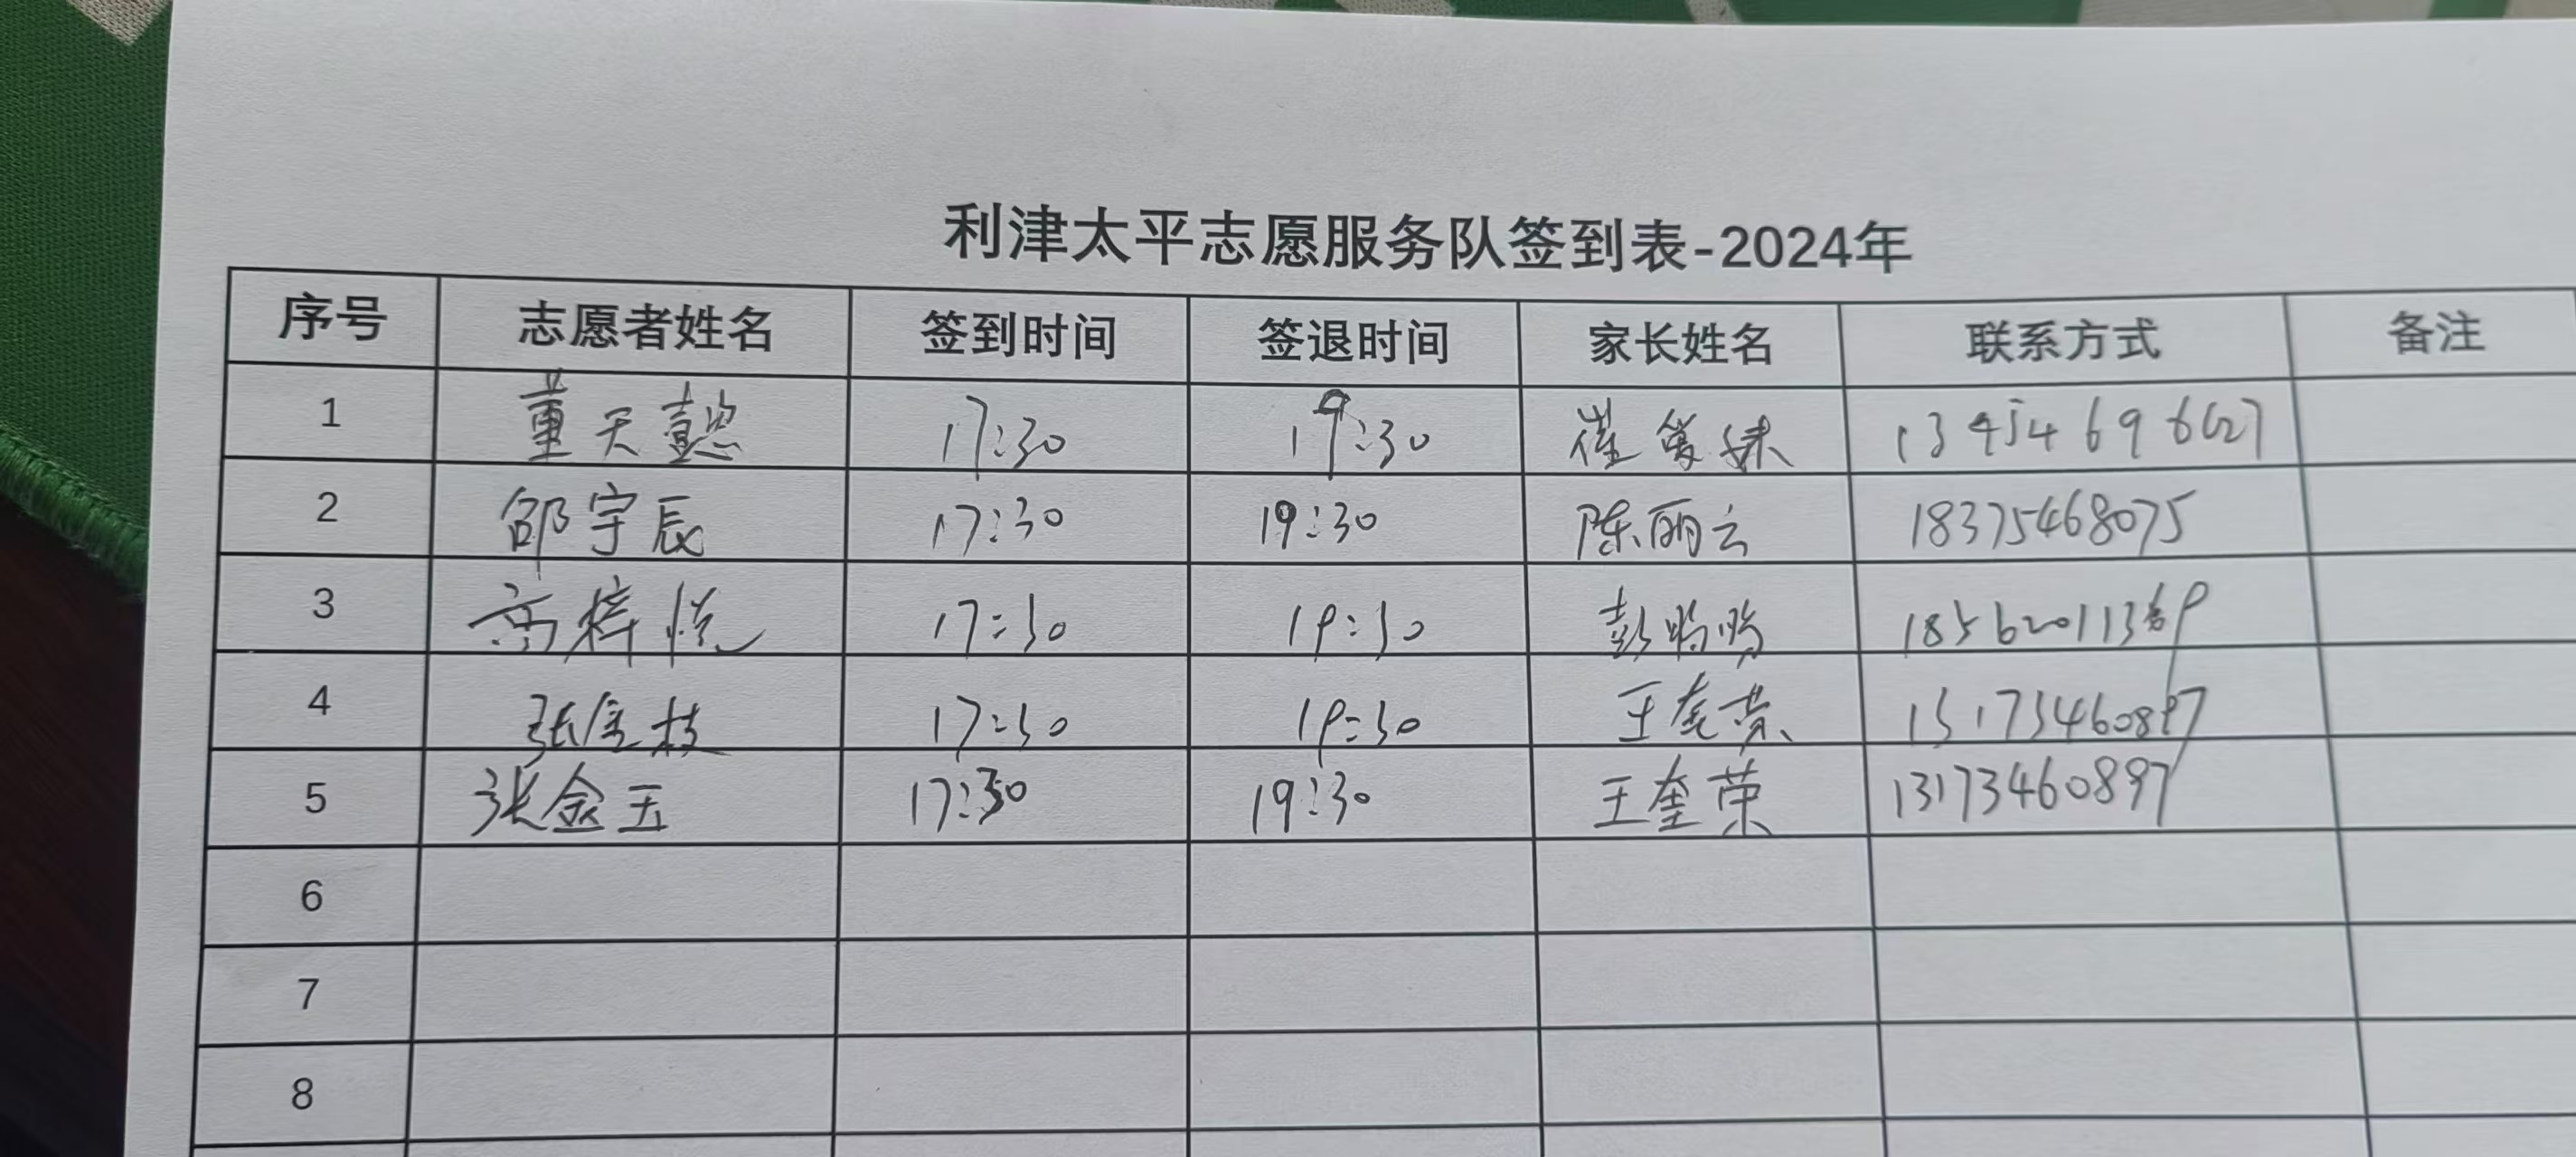 利津太平志愿服务队签到表-2024年
序号 志愿者姓名 签到时间 签退时间 家长姓名 联系方式 备注
1 董天懿 17:30 19:30
2 邵宇辰 17:30 19:30 陈丽云 18375468075
3 高梓悦 17:30 19:30
4 张金枝 17:30 19:30 王奎荣 13173460897
5 张金玉 17:30 19:30 王奎荣 13173460897
6
7
8